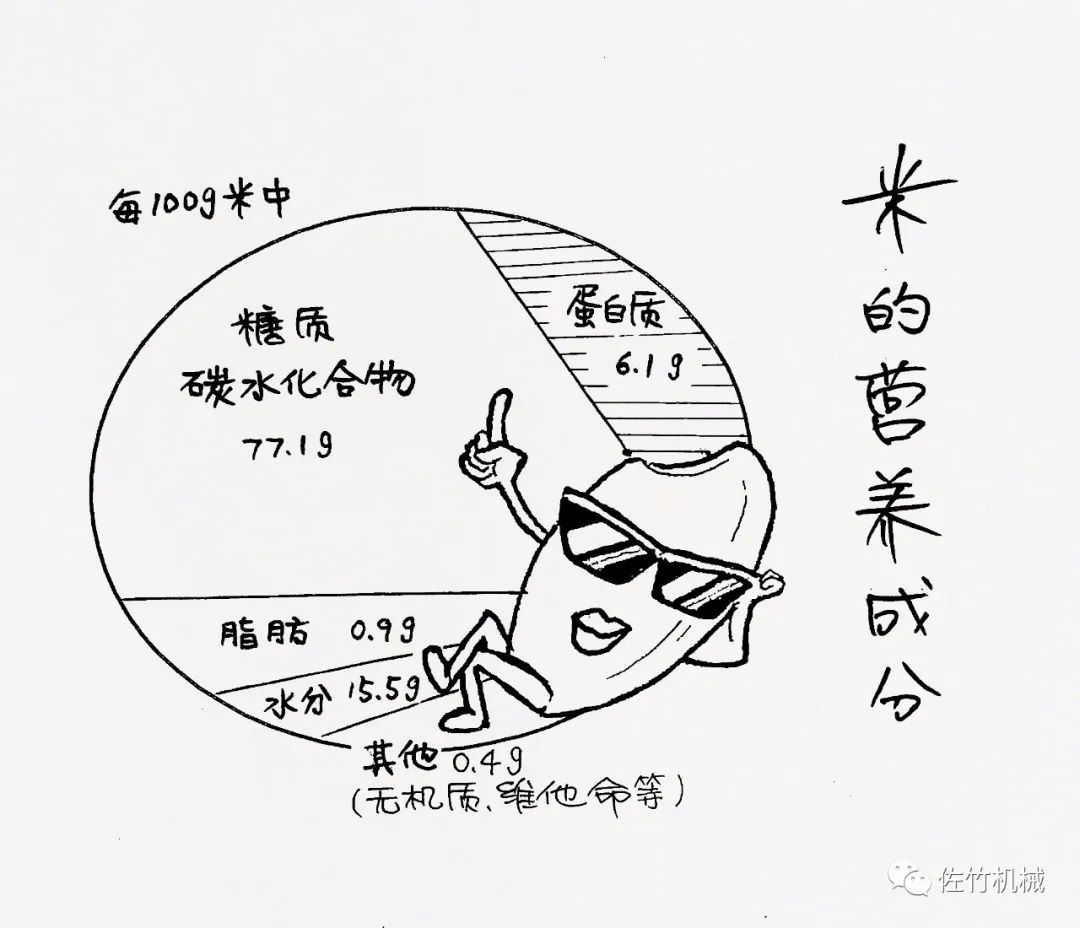 米的营养成分
每100g米中
糖质
碳水化合物
77.1g
蛋白质
6.1g
脂肪 0.9g
水分 15.5g
其他 0.4g
(无机质、维他命等)
佐竹机械